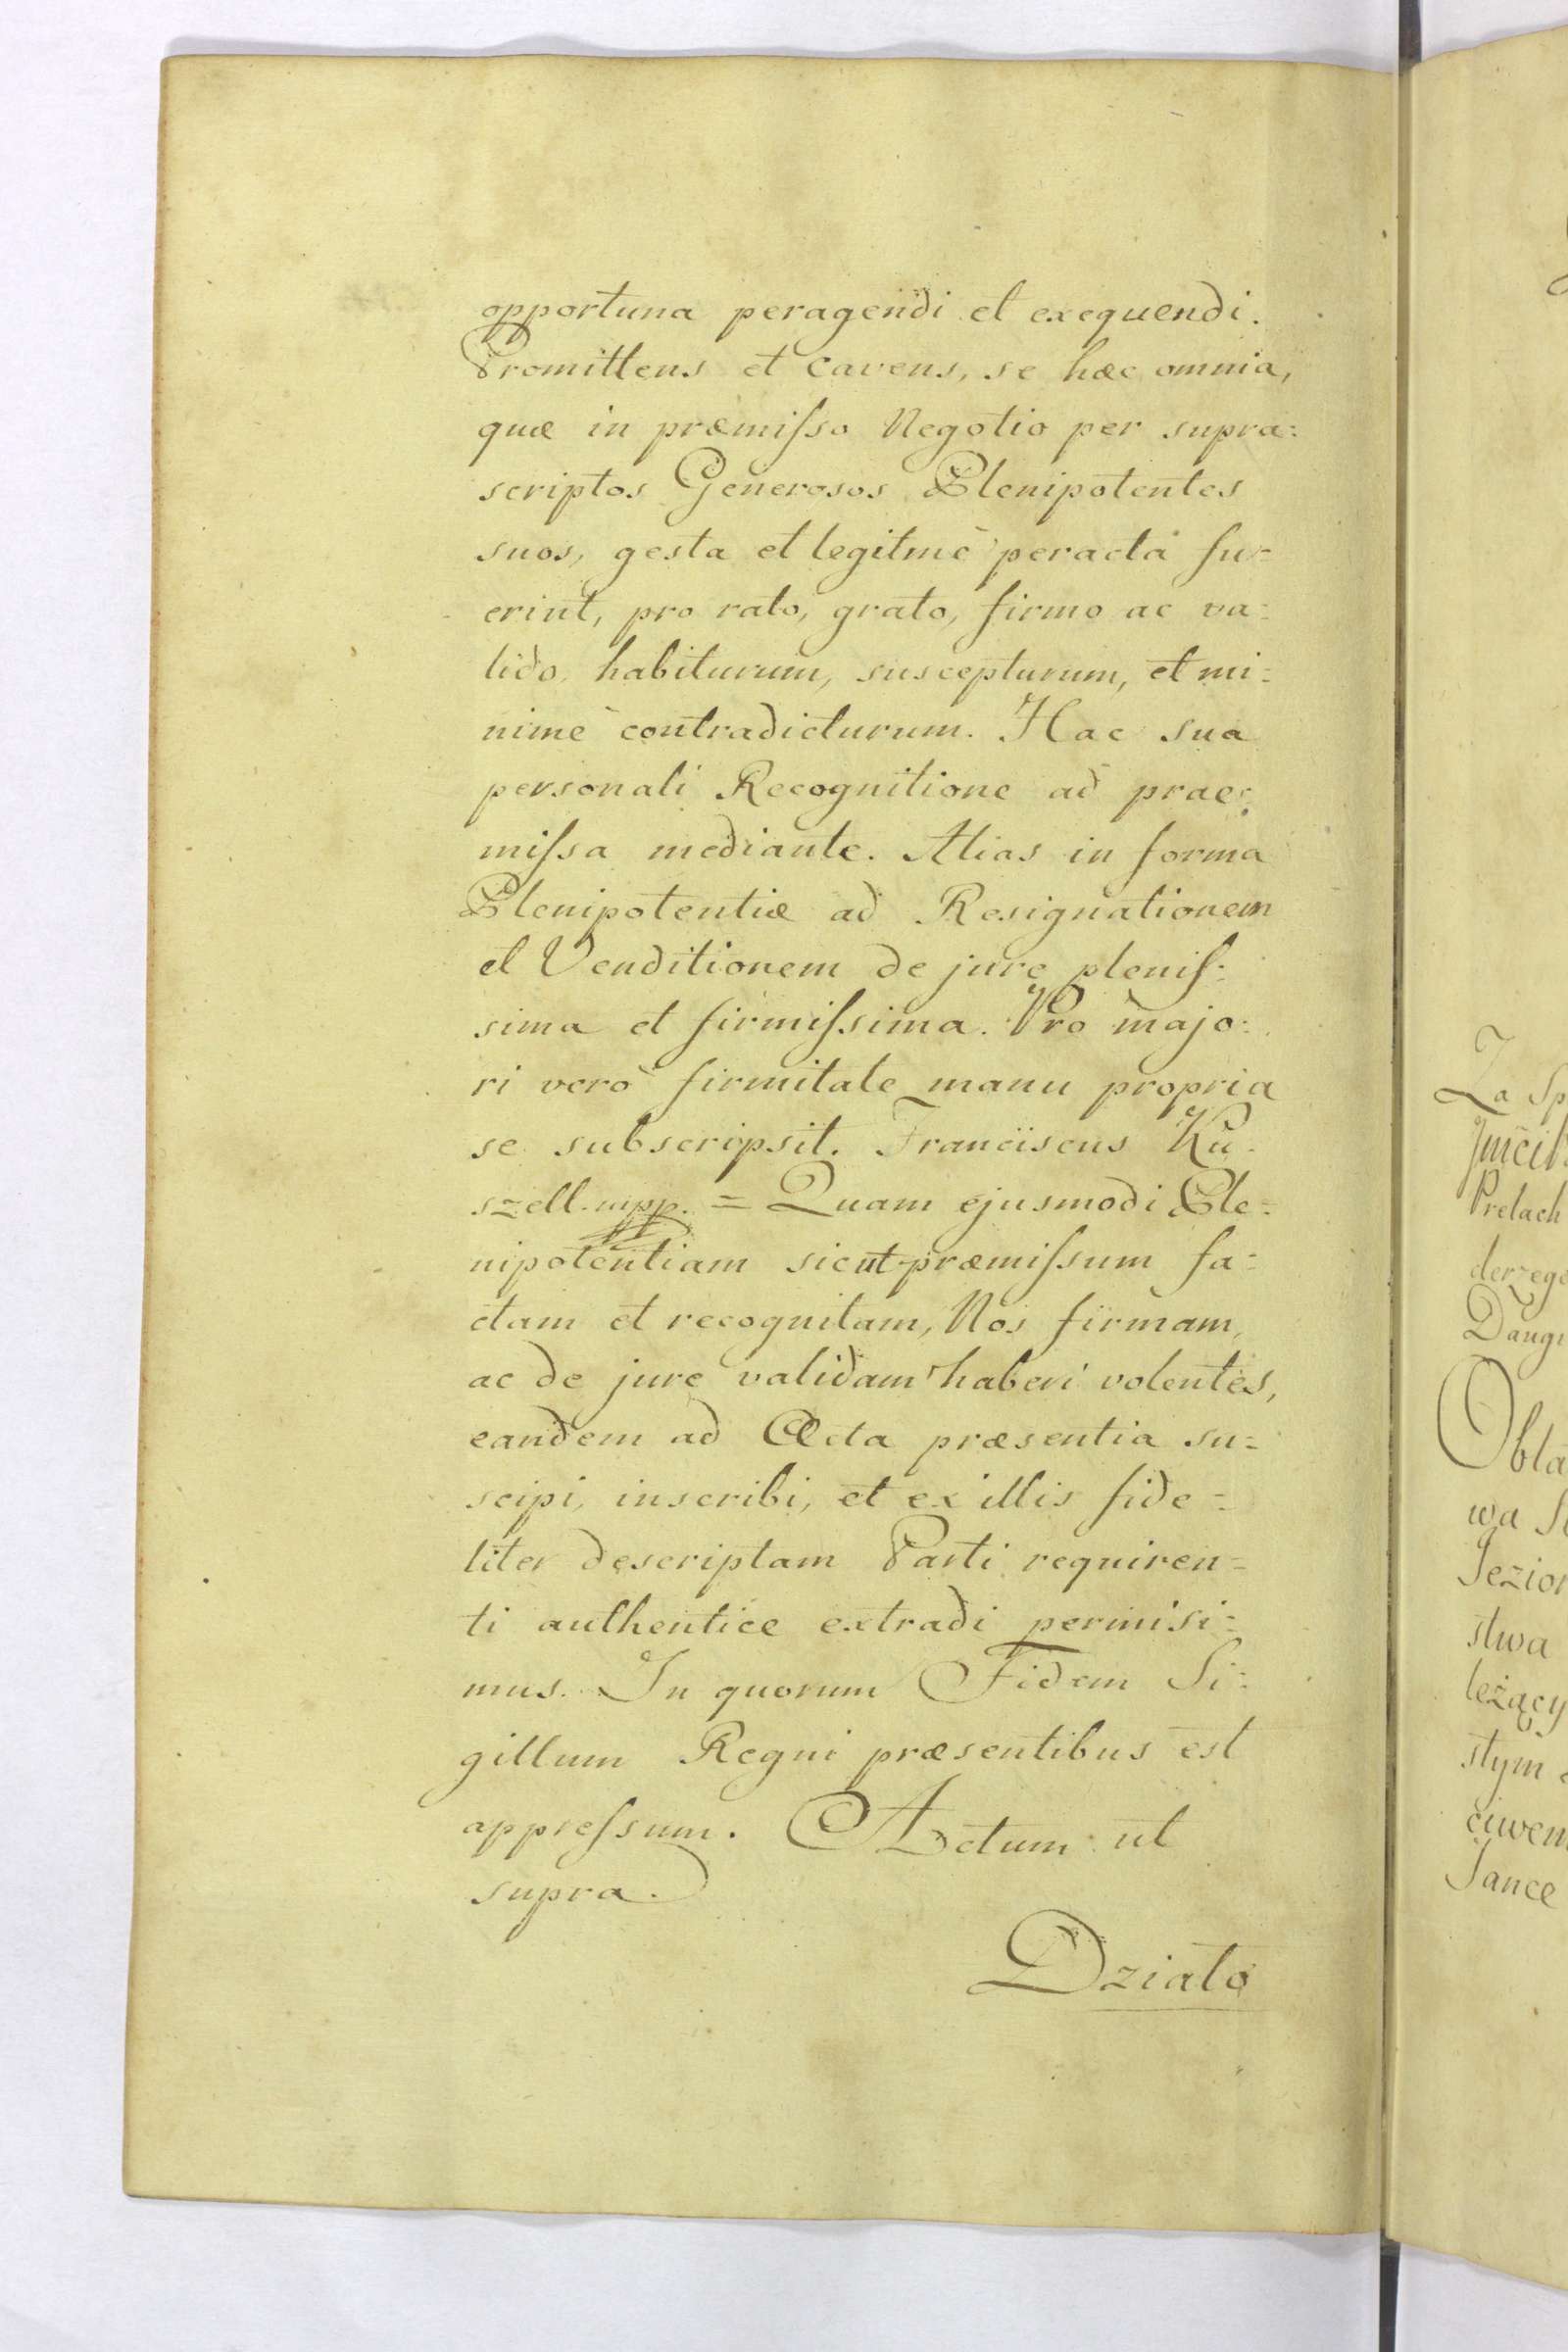 opportuna peragendi et exequendi.
Promittens et cavens, se hæc omnia,
quæ in præmiſso Negotio per supra:
scriptos Generosos Plenipotentes
suos, gesta et legitmè peracta fu=
erint, pro rato, grato, firmo ac va:
lido, habiturum, suscepturum, et mi:
nimè contradicturum. Hac sua
personali Recognitione ad prae:
miſsa mediante. Alias in forma
Plenipotentiæ ad Resignationem
et Venditionem de jure pleniſ:
sima et firmiſsima. Pro majo:
ri verò firmitate manu propria
se subscripsit. Franciscus Ku:
szell. mpp. = Quam ejusmodi Ple=
nipotentiam sicut præmiſsum fa:
ctam et recognitam, Nos firmam,
ac de jure validam haberi volentes,
eandem ad Acta præsentia su=
scipi, inscribi, et ex illis fide=
liter descriptam Parti requiren=
ti authentice extradi permisi=
mus. In quorum Fidem Si:
gillum Regni præsentibus est
appreſsum. Actum ut
supra.
Działo
Za
Prelach
Obla
wa
Jezior
stwa
leżący
stym